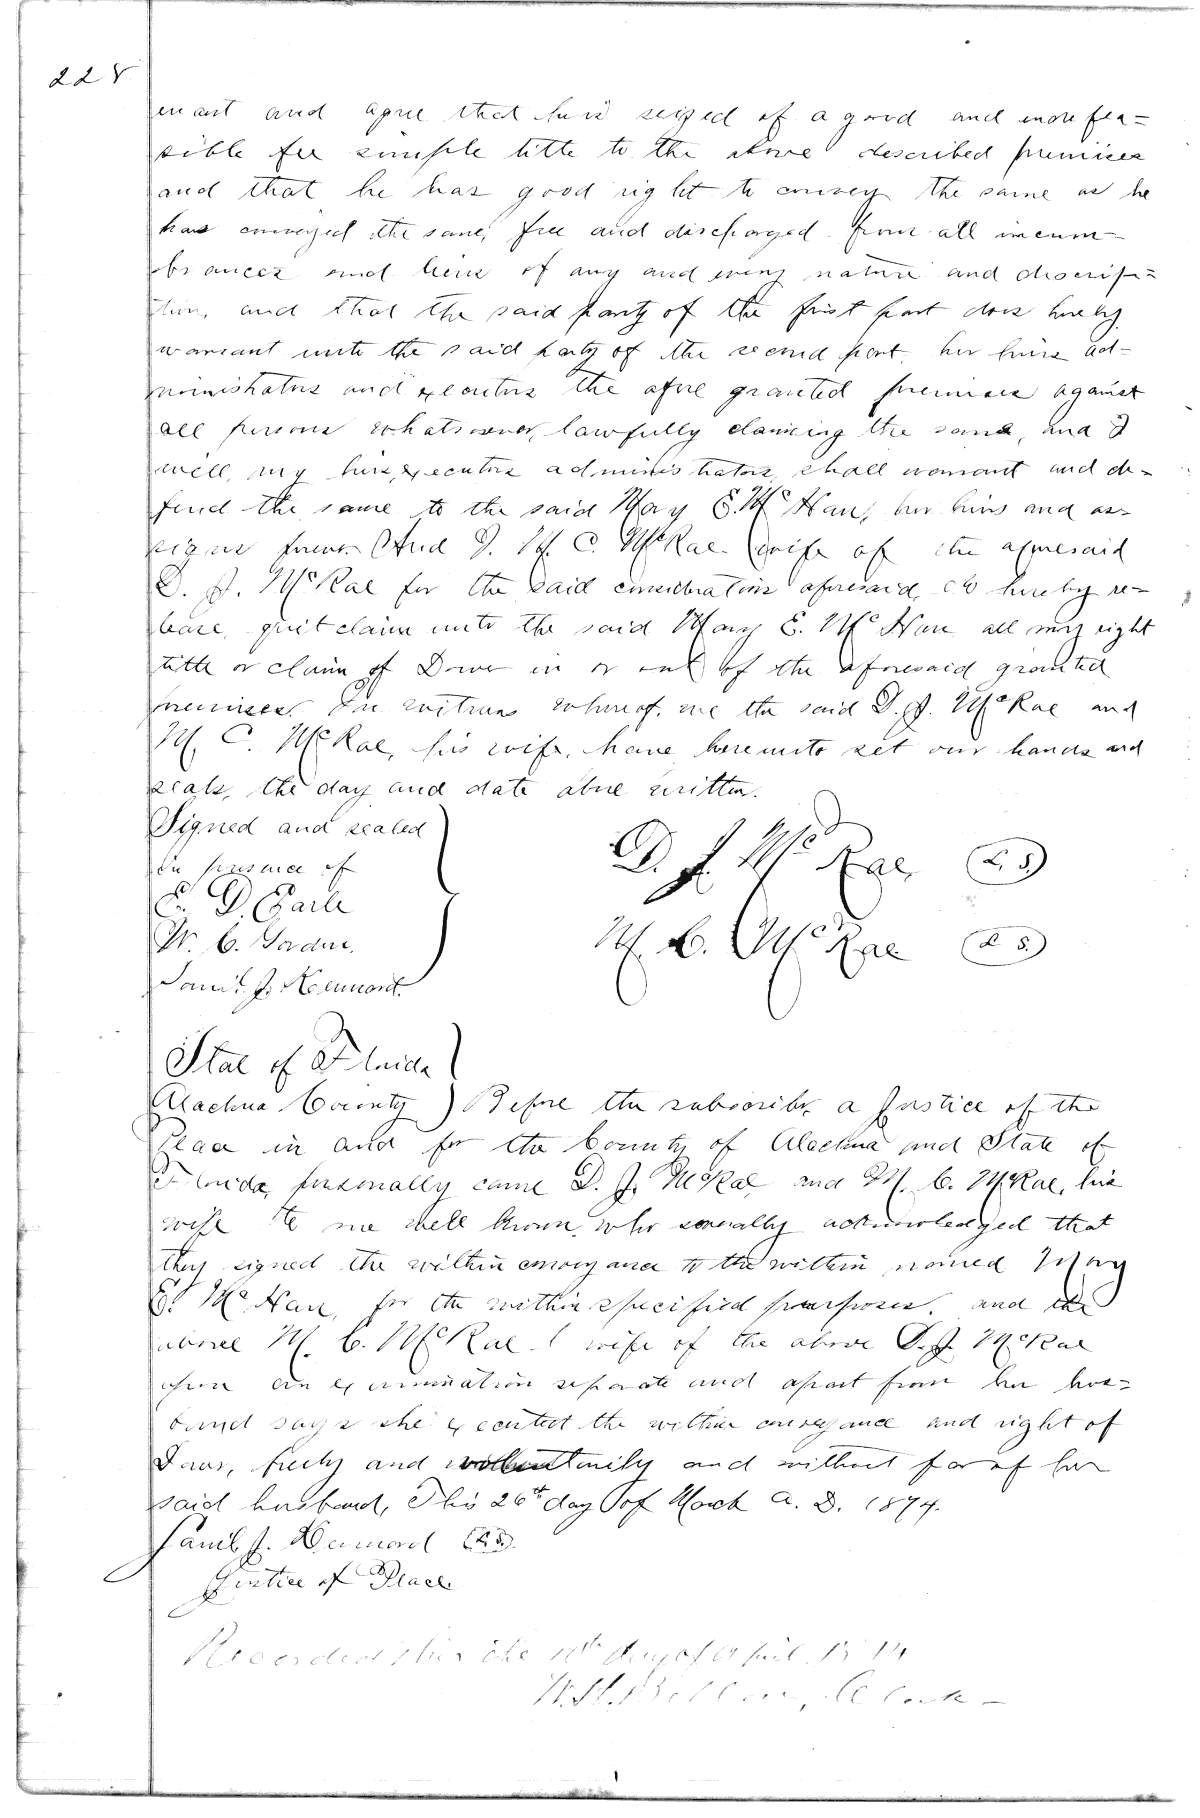 228
enant and agree that he is seized of a good and indefea=
sible fee simple title to the above described premises
and that he has good right to convey the same as he
has conveyed the same, free and discharged from all incum=
brances and liens of any and every nature and descrip=
tion, and that the said party of the first part does hereby
warrant unto the said party of the second part, her heirs ad=
ministrators and executors the afore granted premises against
all persons whatsoever, lawfully claiming the same, and I
will, my heirs, executors administrators, shall warrant and de=
fend the same to the said Mary E. Mc Nair, her heirs and as=
signs forever. And I. M. C. McRae (wife of the aforesaid
D. J. McRae for the said consideration aforesaid, do hereby re=
lease, quit claim unto the said Mary E. Mc Nair all my right
title or claim of Dower in or out of the aforesaid granted
premises. In witness whereof, we the said D. J. McRae and
M. C. McRae, his wife, have hereunto set our hands and
seals, the day and date above written.
Signed and sealed
in presence of
E. D. Earle
W. C. Gordon.
Saml J. Kennard.
D. J. McRae, (L. S.)
M. C. McRae (L S.)
State of Florida
Alachua County) Before the subscriber a Justice of the
Peace in and for the County of Alachua and State of
Florida, personally came D. J. McRae, and M. C. McRae, his
wife to me well known, who severally acknowledged that
they signed the within conveyance to the within named Mary
E. Mc Nair, for the within specified purposes. and the
above M. C. McRae ( wife of the above D. J. McRae
upon an examination separate and apart from her hus=
band says she executed the within conveyance and right of
Dower, freely and voluntarily and without fear of her
said husband, This 26th day of March A. D. 1874.
Saml J. Kennard (L.S.)
Justice of Peace
Recorded this the day of April
W. H. Clerk